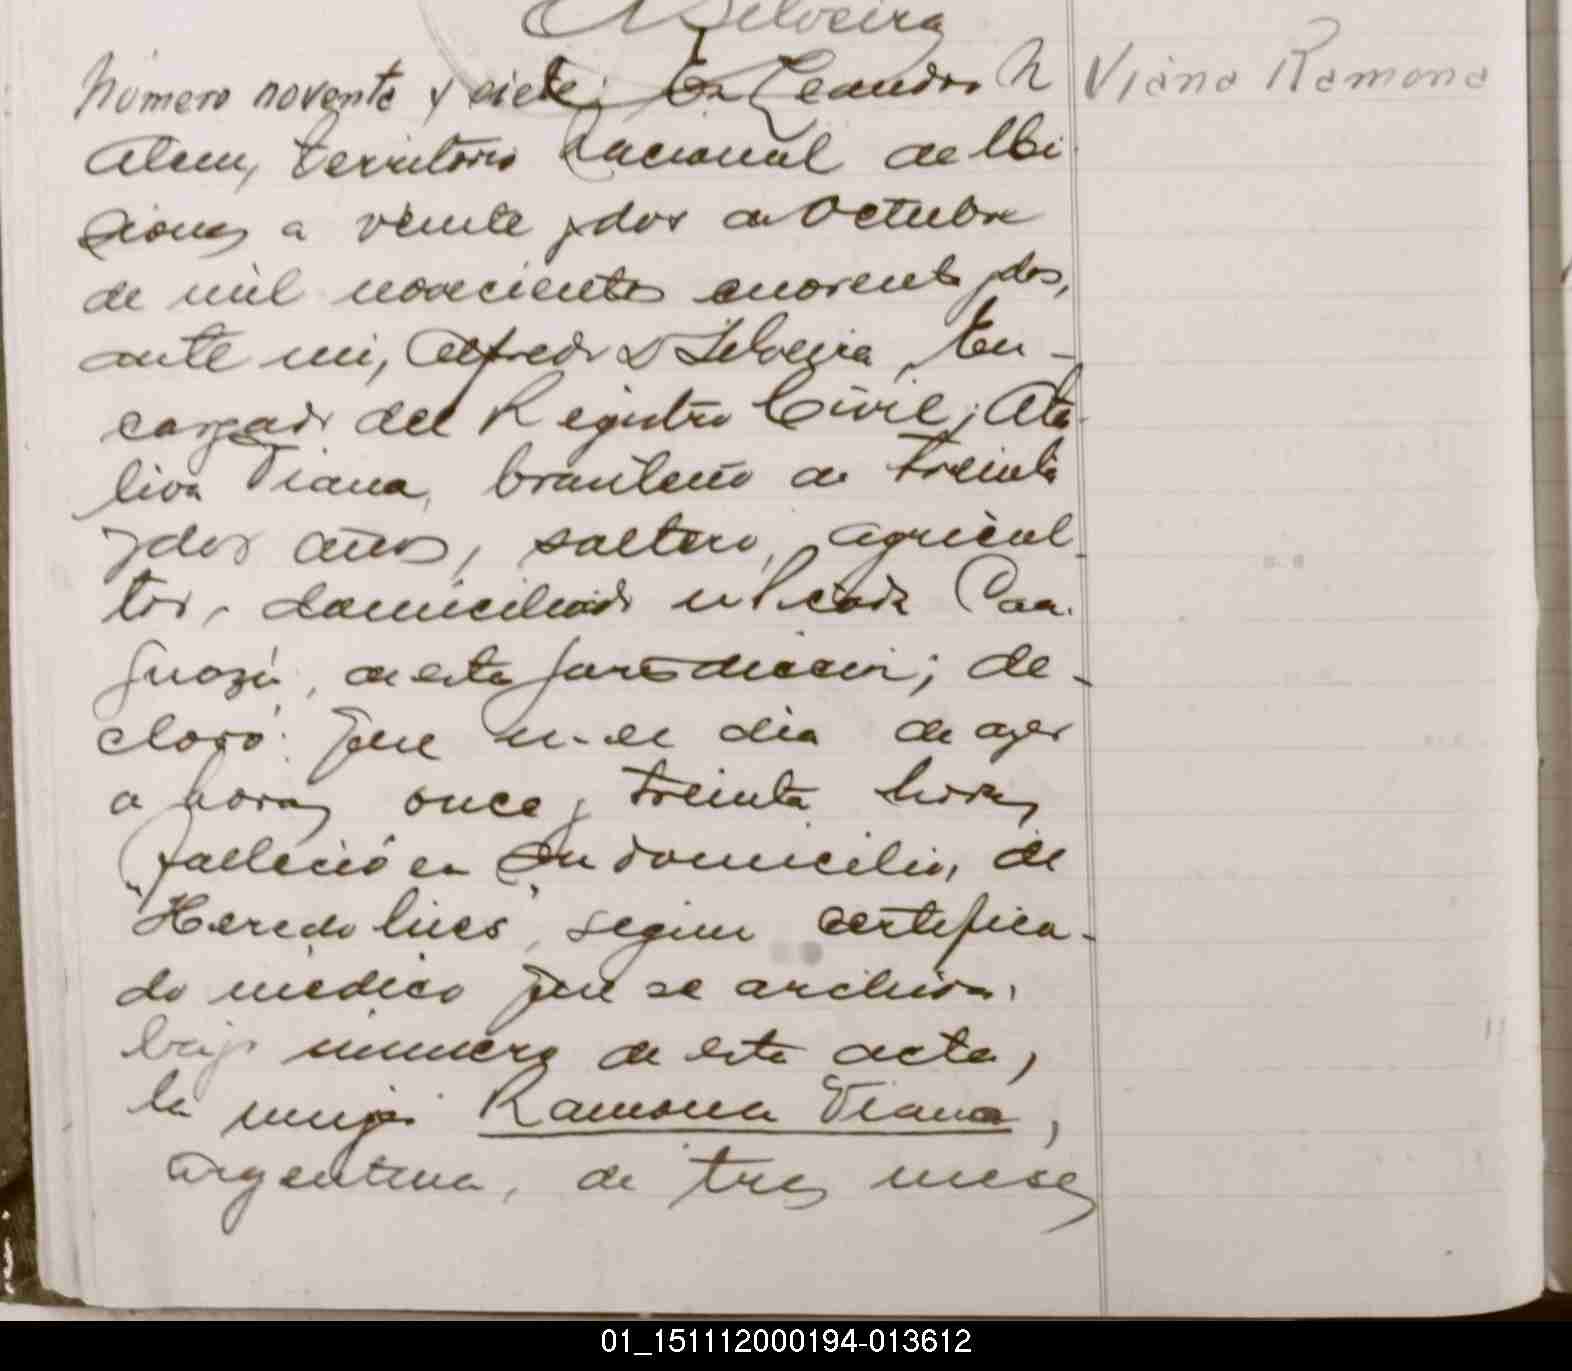 A Silveira
Número noventa y siete: En Leandro N
Viana Ramona
Alem, territorio Nacional de Mi
siones a veinte y dos de Octubre
de mil novecientos cuarenta y dos,
ante mi, Alfredo D Silveira, En-
cargado del Registro Civil; Ata-
liva Viana, brasileño de treinta
y dos años, soltero, agricul-
tor, domiciliado en Picada Caa-
Guazú, de esta jurisdiccion; de-
claró: Que en el dia de ayer
a horas once y treinta horas
falleció en su domicilio, de
"Heredo lues", segun certifica-
do médico que se archiva
bajo número de este acta,
la mujer Ramona Viana,
argentina, de tres meses
01_151112000194-013612